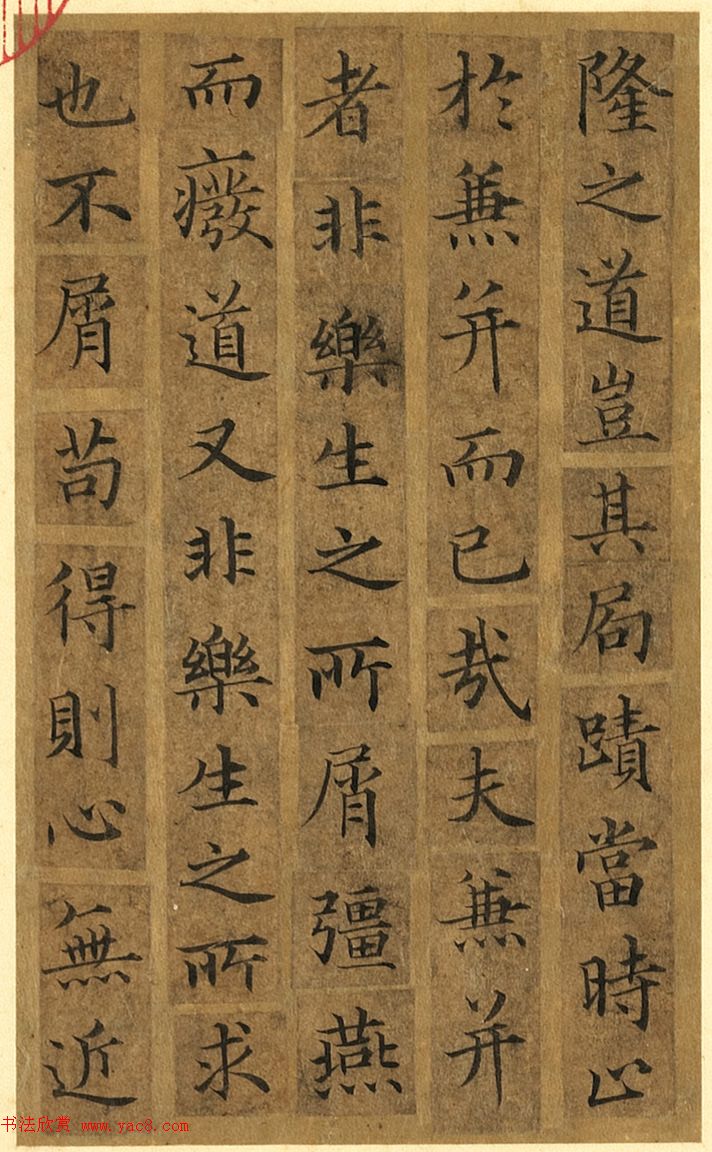 隆之道豈其局蹟當時止
於兼并而已哉夫兼并
者非樂生之所屑彊燕
而癈道又非樂生之所求
也不屑苟得則心無近
书法欣赏 www.yac8.com